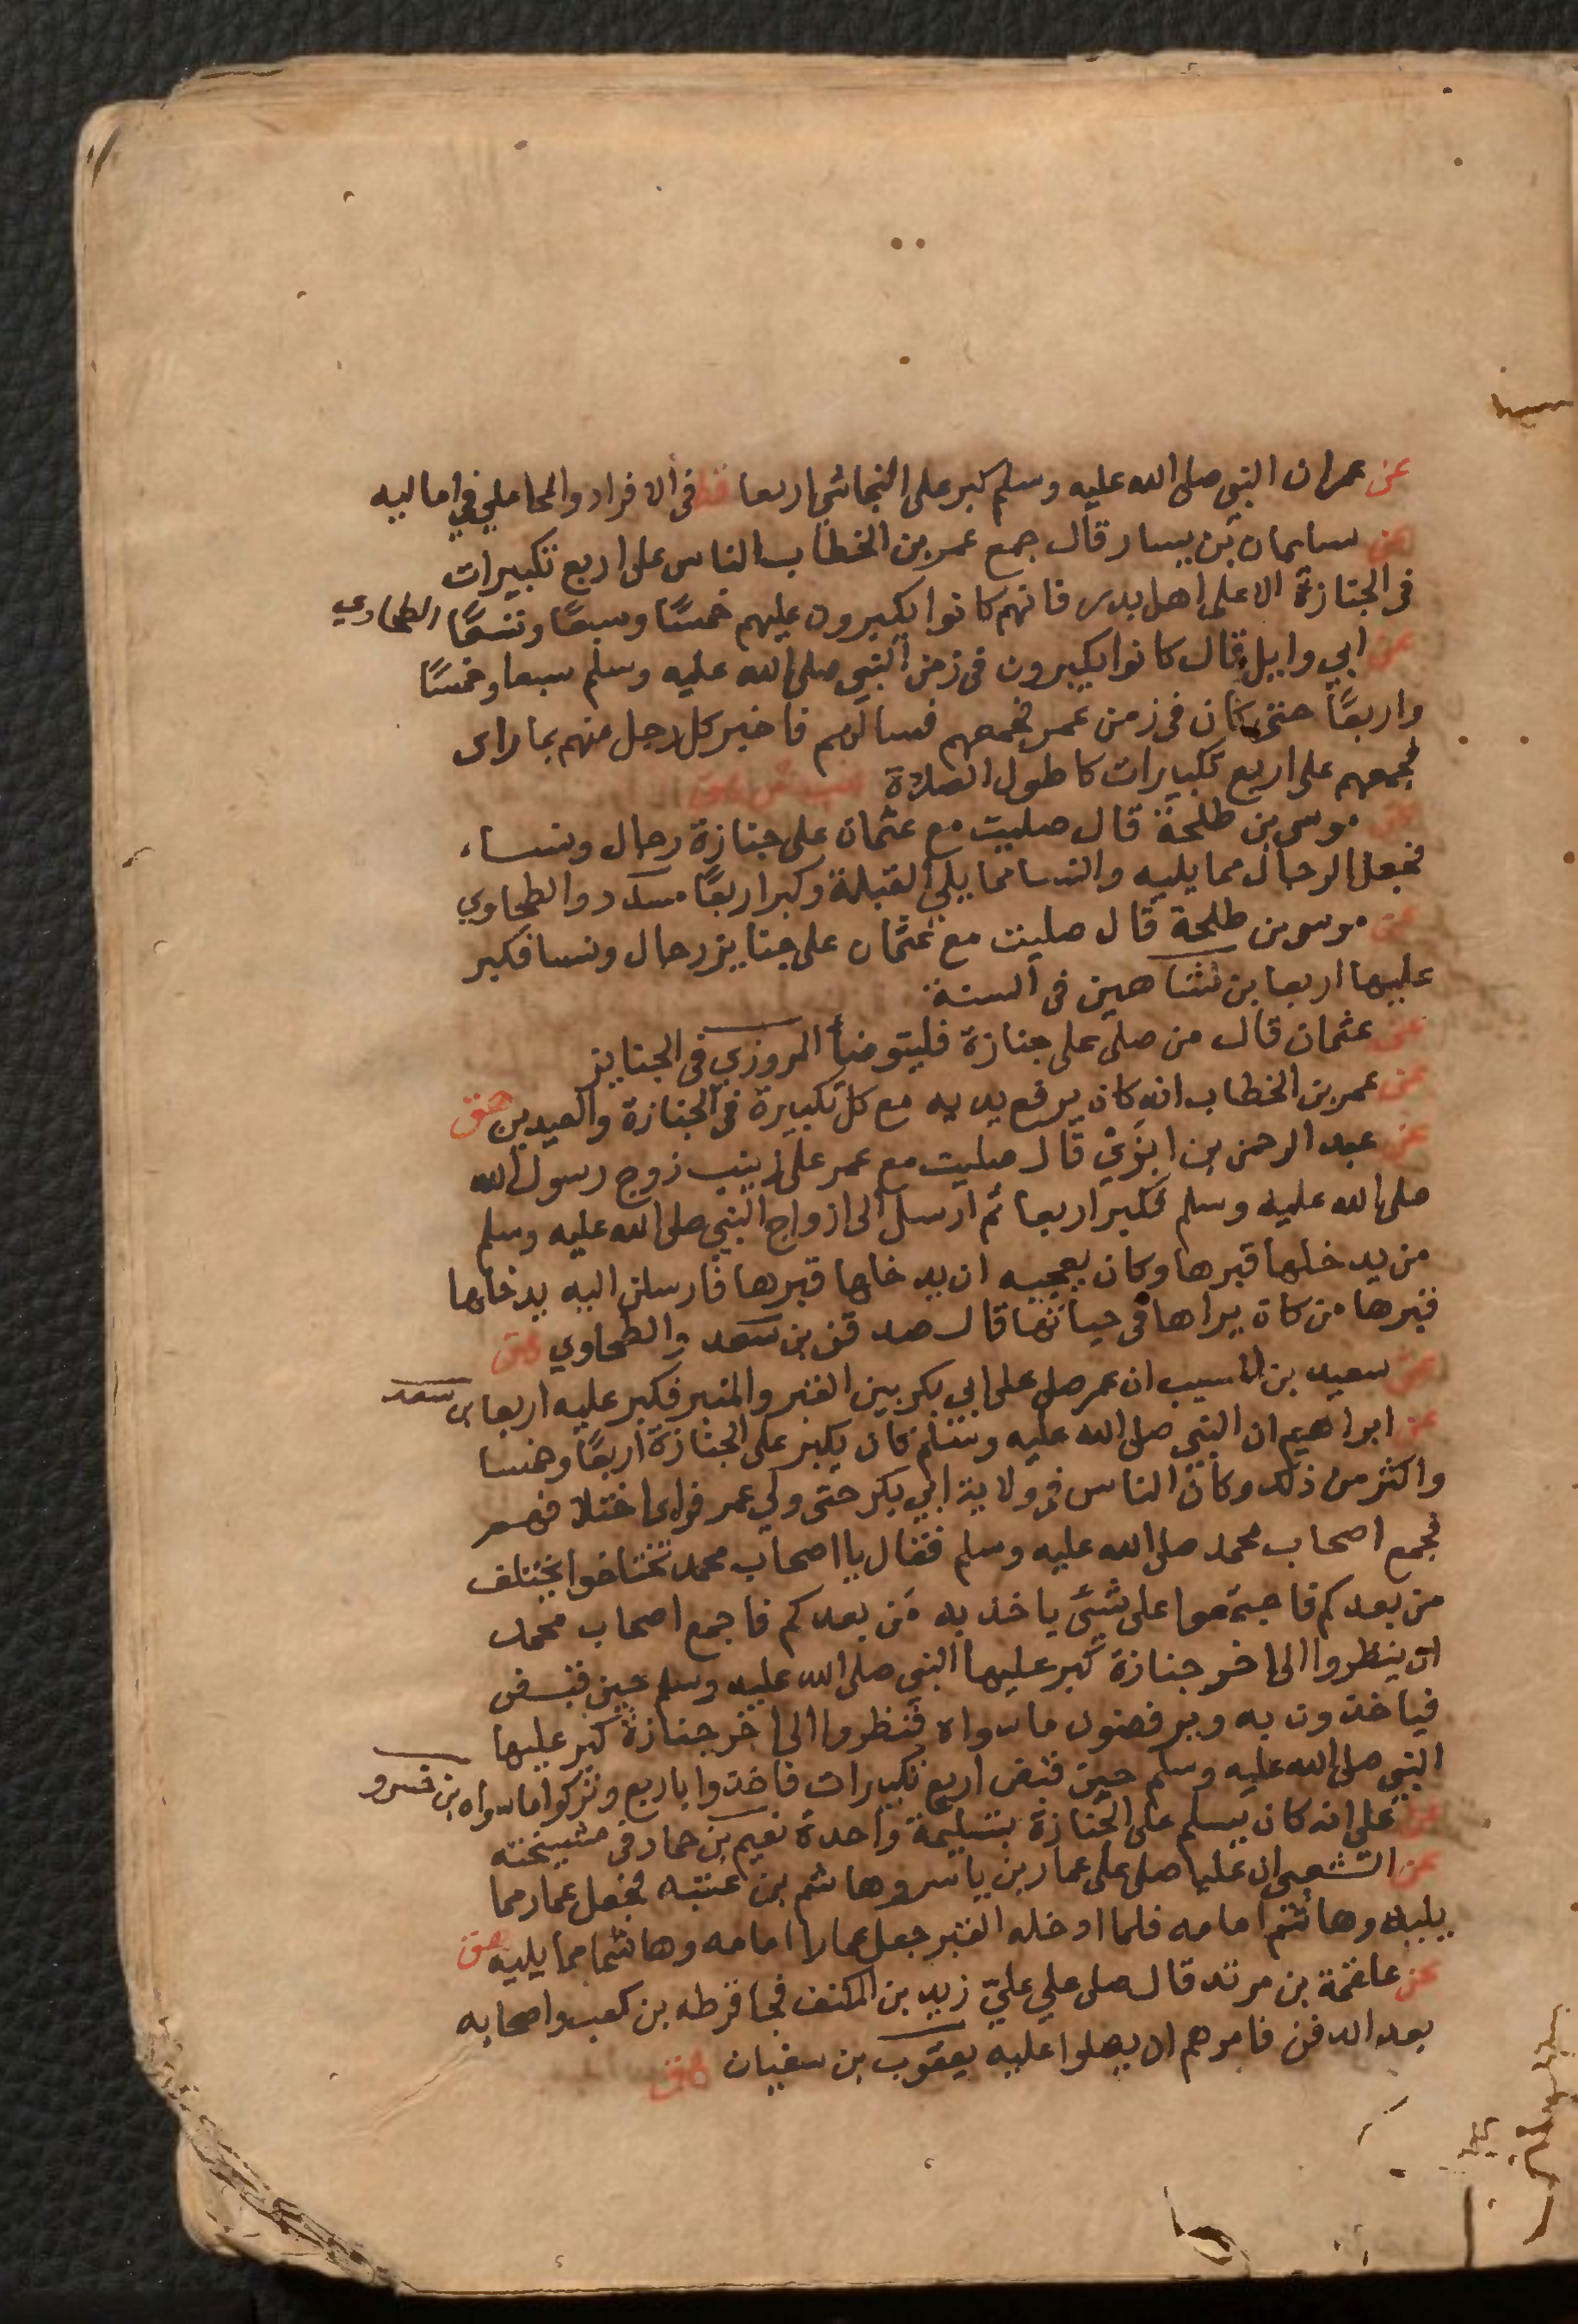 عن عمر ان النبي صلى الله عليه وسلم كبر على النجاشي اربعا قط في الافراد والمحاملي في اماليه
عن سليمان بن يسار قال جمع عمر بن الخطاب الناس على اربع تكبيرات
في الجنازة الا على اهل بدر فانهم كانوا يكبرون عليهم خمسًا وسبعًا وتسعًا الطحاوي
عن ابي وايل قال كانوا يكبرون في زمن النبي صلى الله عليه وسلم سبعا وخمسًا
واربعًا حتى كان في زمن عمر فجمعهم فسالهم فاخبر كل رجل منهم بما راى
فجمعهم على اربع تكبيرات كاطول الصلاة
عن موسى بن طلحة قال صليت مع عثمان على جنازة رجال ونساء
فجعل الرجال مما يليه والنسا مما يلي القبلة وكبر اربعًا مسدد والطحاوي
عن موسى بن طلحة قال صليت مع عثمان على جنايز رجال ونسا فكبر
عليها اربعا بن شاهين في السنة
عن عثمان قال من صلى على جنازة فليتوضأ المروزي في الجنايز
عن عمر بن الخطاب انه كان يرفع يديه مع كل تكبيرة في الجنازة والعيدين هق
عن عبد الرحمن بن ابزي قال صليت مع عمر على زينب زوج رسول الله
صلى الله عليه وسلم فكبر اربعا ثم ارسل الى ازواج النبي صلى الله عليه وسلم
من يدخلها قبرها وكان يعجبه ان يدخلها قبرها فارسلن اليه يدخلها
قبرها من كان يراها في حياتها قال صدقن بن سعد والطحاوي هق
عن سعيد بن المسيب ان عمر صلى على ابي بكر بين القبر والمنبر فكبر عليه اربعا بن سعد
عن ابراهيم ان النبي صلى الله عليه وسلم كان يكبر على الجنازة اربعًا وخمسا
واكثر من ذلك وكان الناس في ولاية ابي بكر حتى ولي عمر فراى اختلافهم
فجمع اصحاب محمد صلى الله عليه وسلم فقال يا اصحاب محمد تختلفوا يختلف
من بعدكم فاجتمعوا على شيئ ياخذ به من بعدكم فاجمع اصحاب محمد
ان ينظروا الى اخر جنازة كبر عليها النبي صلى الله عليه وسلم حين قبض
فياخذون به ويرفضون ما سواه فنظروا الى اخر جنازة كبر عليها
النبي صلى الله عليه وسلم حين قبض اربع تكبيرات فاخذوا باربع وتركوا ما سواه بن خسرو
عن علي انه كان يسلم على الجنازة بتسليمة واحدة نعيم بن حماد في مشيخته
عن الشعبي ان عليا صلى على عمار بن ياسر وهاشم بن عتبه فجعل عمار مما
يليه وهاشم امامه فلما ادخله القبر جعل عمارا امامه وهاشما مما يليه هق
عن علقمة بن مرثد قال صلى علي عليّ زيد بن المكنف فجا قرظه بن كعب واصحابه
بعد الدفن فامرهم ان يصلوا عليه يعقوب بن سفيان هق